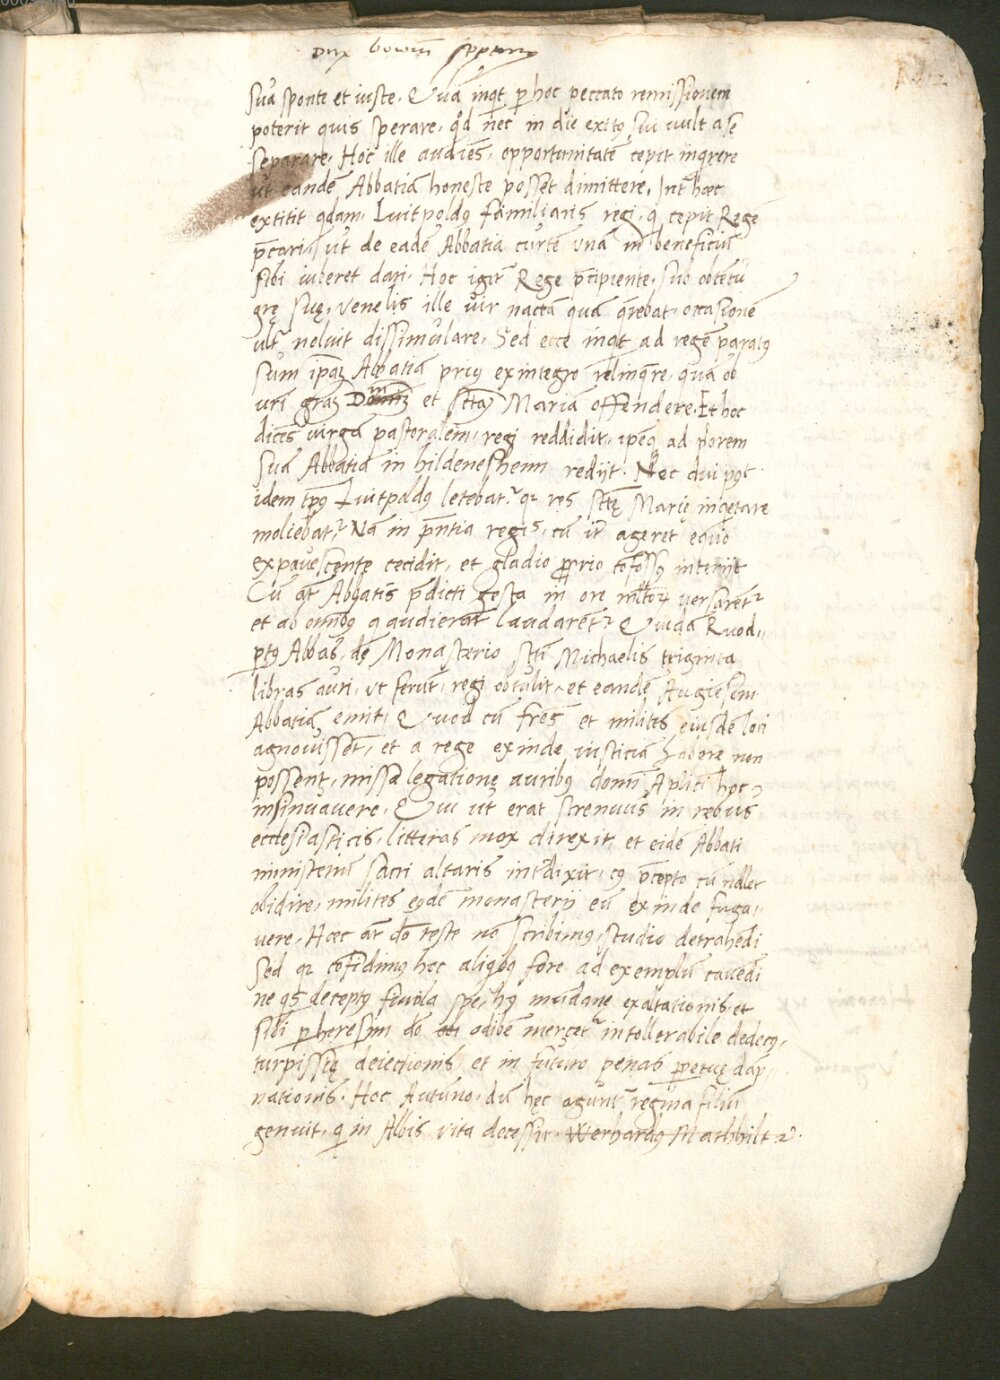 Sua sponte et iuste. Quā inqt p hoc peccato remissionem
poterit quis sperare, qd nec in die exitq sui vult a se
separare. Hoc ille audiēs, opportunitatē cepit inqrere
ut eandē Abbatiā honeste posset dimittere. Int hæc
extitit qdam Luitpoldq familiaris regi, q cepit Regē
p̄cari, ut de eadē Abbatia curtē unā in beneficiū
sibi iuberet dari. Hoc igit Rege p̄cipiente, sub obtētu
gr̄ę suę, venelis ille vir nactā quā q̄rebat, occasionē
ult noluit dissimulare. Sed ecce inqt ad regē paratq
sum ip̄aʒ Abbatiā priq ex integre relinqre, quā ob
uri grāʒ et sctāʒ Mariā offendere. Et hoc
dicēs virgā pastoralem regi reddidit, ipeq ad priorem
suā Abbatiā in hildeneshem redijt. Nec diu pqt
idem tpq Luitpoldq letebat, q res sctę Marię inqetare
moliebat. Nā in p̄ntia regis, cū it ageret equo
expavescente cecidit, et gladio pprio cōfossq interijt
Cū at Abbatis p̄dicti gesta in ore mltoʒ versarēt
et ab omībq q audierāt laudarēt Quidā Ruod„
ptq Abbas de Monasterio sti Michaelis triginta
libras auri, ut ferūt, regi obtulit, et eandē Augiēsem
Abbatiā emit. Quod cū fr̄es et milites eiusdē loci
agnovissēt, et a rege exinde iusticiā habere non
possent, missa legatione auribq domī Apl̄ici hoc
insinuavere. Qui ut erat strenuus in rebus
ecclesiasticis, litteras mox direxit, et eidē Abbati
ministeriū sacri altaris intdixit, cq p̄cepto cū nollet
obidire, milites eqdē monasterij eū exinde fuga„
vere. Hæc at dō teste nō scribimq studio detrahēdi
sed q cōfidimq hec aliqbq fore ad exemplū cavēdi
ne qs deceptq frivola spe, hq mūdanę exaltationis, et
sibi p heresim dō odibē mercet intollerabile dedecq,
turpissię deiectionis et in futuro penas ppetuę dāp„
nationis. Hoc Autūno, dū hęc agunt regina filiū
genuit, q in Albis vita decessit. Werhardq Mathhilt